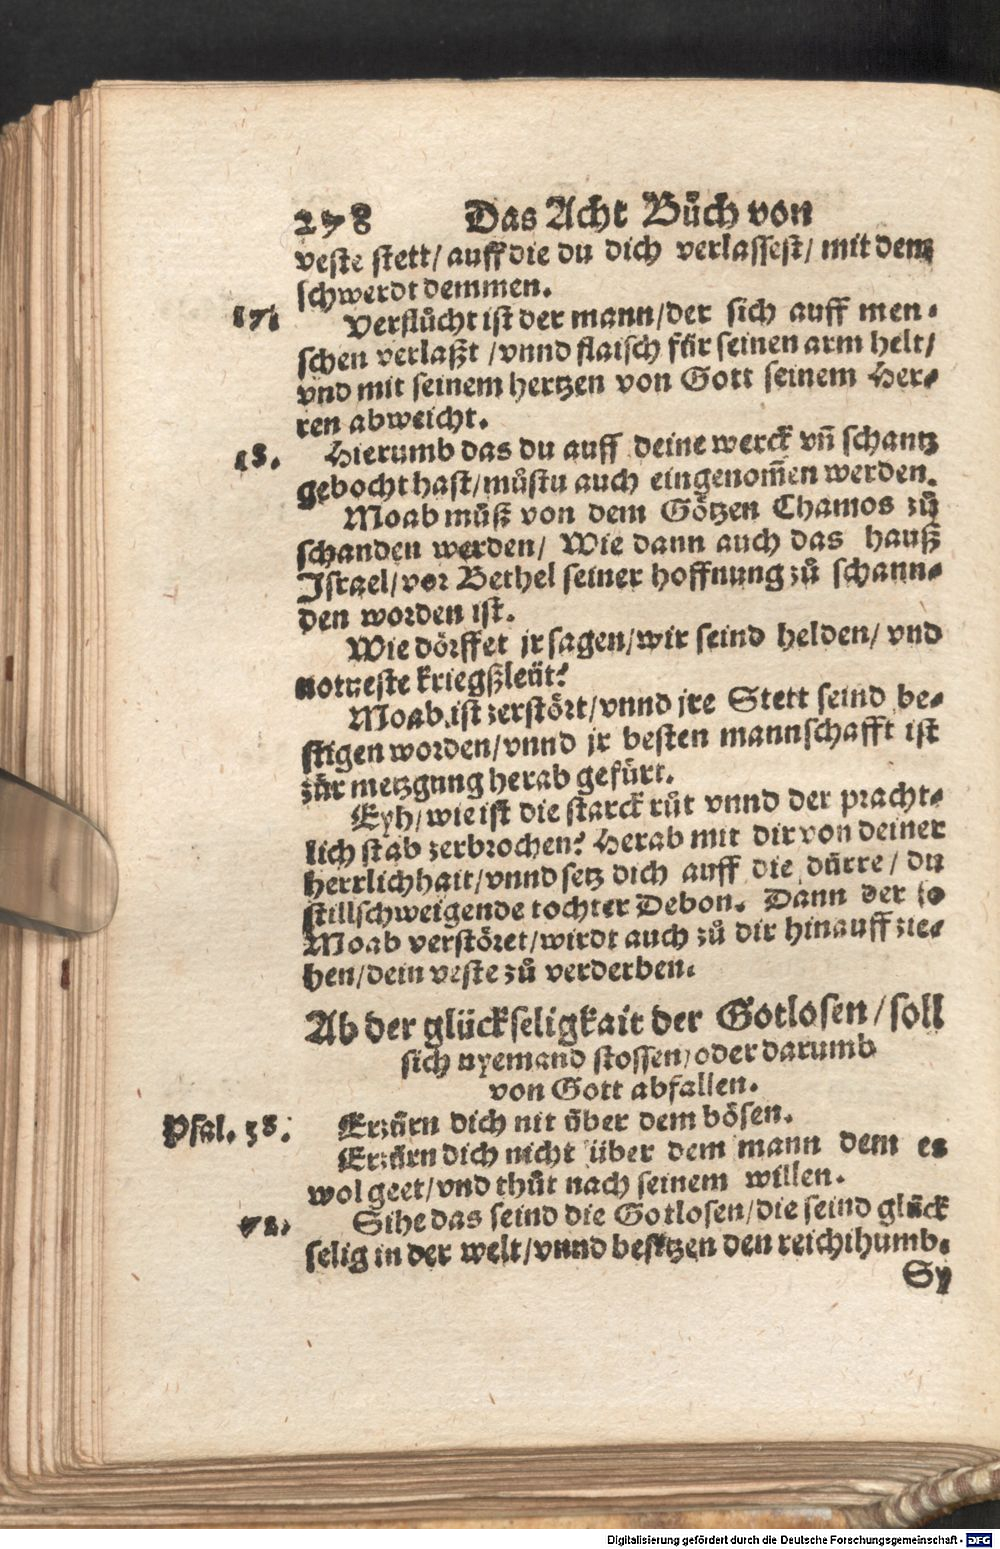 278 Das Acht Buͤch von
veste stett/ auff die du dich verlassest/ mit dem
schwerdt demmen.
17. Verfluͦcht ist der mann/der sich auff men-
schen verlaßt /vnnd flaisch fuͤr seinen arm helt/
vnd mit seinem hertzen von Gott seinem Her-
ren abweicht.
18. Hierumb das du auff deine werck vñ schantz
gebocht hast/muͦstu auch eingenom̄en werden.
Moab muͦß von dem Goͤtzen Chamos zuͦ
schanden werden/ Wie dann auch das hauß
Israel/vor Bethel seiner hoffnung zuͦ schann-
den worden ist.
Wie doͤrffet jr sagen/wir seind helden/ vnd
notueste kriegßleuͤt?
Moab ist zerstoͤrt/vnnd jre Stett seind be-
stigen worden/vnnd jr besten mannschafft ist
zuͦr metzgung herab gefuͤrt.
Eyh/wie ist die starck ruͦt vnnd der pracht-
lich stab zerbrochen? Herab mit dir von deiner
herrlichhait/vnnd setz dich auff die duͤrre/ du
stillschweigende tochter Debon. Dann der so
Moab verstoͤret/wirdt auch zuͦ dir hinauff zie-
hen/dein veste zuͦ verderben.
Ab der glückseligkait der Gotlosen/soll
sich nyemand stossen/oder darumb
von Gott abfallen.
Psal. 36. Erzuͤrn dich nit uͤber dem boͤsen.
Erzuͤrn dich nicht uͤber dem mann dem es
wol geet/vnd thuͦt nach seinem willen.
72. Sihe das seind die Gotlosen/die seind gluͤck
selig in der welt/vnnd besitzen den reichthumb.
Sy
Digitalisierung gefördert durch die Deutsche Forschungsgemeinschaft - DFG